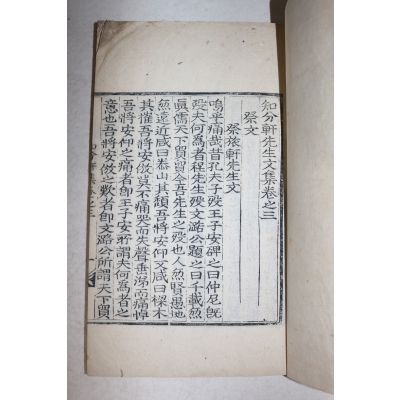 知分軒先生文集卷之三
祭文
祭旅軒先生文
嗚乎痛哉昔孔夫子歿王子安碑之曰仲尼旣
歿夫何爲者程先生歿文潞公題之曰千載無
眞儒天下貿貿今吾先生之歿也人無賢愚地
無遠近咸曰泰山其頹吾將安仰又咸曰樑木
其摧吾將安倣莫不痛哭而失聲垂涕而痛悼
吾將安仰之痛者卽王子安所謂夫何爲者之
意也吾將安倣之歎者卽文潞公所謂天下貿